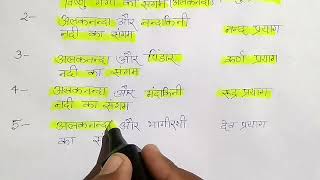 विष्णु गंगा का संगम (अलकनंदा)
2- अलकनन्दा और नन्दाकिनी नन्द प्रयाग
नदी का संगम
3- अलकनन्दा और पिंडार कर्ण प्रयाग
नदी का संगम
4- अलकनन्दा और मंदाकिनी रुद्र प्रयाग
नदी का संगम
5- अलकनन्दा और भागीरथी देव प्रयाग
का